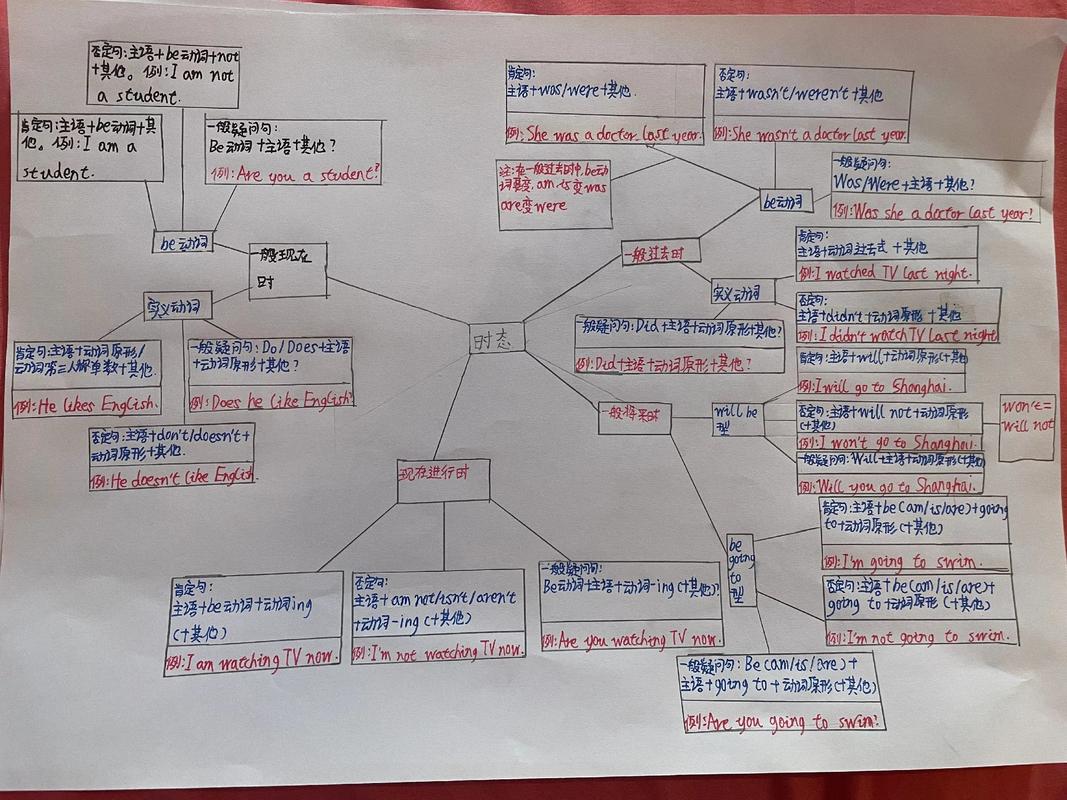 否定句:主语+be动词+not
+其他。例:I am not
a student.
肯定句:主语+be动词+其
他。例:I am a
student.
一般疑问句:
Be动词+主语+其他?
例:Are you a student?
be动词
一般现在
时
实义动词
肯定句:主语+动词原形/
动词第三人称单数+其他.
例:He likes English.
一般疑问句:Do/Does+主语
+动词原形+其他?
例:Does he like English?
否定句:主语+don't/doesn't+
动词原形+其他.
例:He doesn't like English.
时态
肯定句:
主语+was/were+其他.
例:She was a doctor last year.
否定句:
主语+wasn't/weren't+其他
例:She wasn't a doctor last year.
注:在一般过去时中,be动
词要变,am is变was
are变were
be动词
一般疑问句:
Was/Were+主语+其他?
例:Was she a doctor last year?
一般过去时
实义动词
肯定句:
主语+动词过去式+其他
例:I watched TV last night.
否定句:
主语+didn't+动词原形+其他
例:I didn't watch TV last night
一般疑问句:Did+主语+动词原形+其他?
例:Did+主语+动词原形+其他?
一般将来时
will be
型
肯定句:主语+will+动词原形(+其他
例:I will go to Shanghai.
否定句:主语+will not+动词原形
(+其他)
例:I won't go to Shanghai.
won't=
will not
一般疑问句:Will+主语+动词原形(+其他)
例:Will you go to Shanghai.
be
going
to
型
肯定句:主语+be(am/is/are)+going
to+动词原形(+其他)
例:I'm going to swim.
否定句:主语+be(am/is/are)+
going to+动词原形(+其他)
例:I'm not going to swim.
一般疑问句:Be(am/is/are)+
主语+going to+动词原形(+其他)
例:Are you going to swim?
现在进行时
肯定句:
主语+be动词+动词ing
(+其他)
例:I am watching TV now.
否定句:
主语+am not/isn't/aren't
+动词-ing(+其他)
例:I'm not watching TV now.
一般疑问句:
Be动词+主语+动词-ing(+其他)?
例:Are you watching TV now.